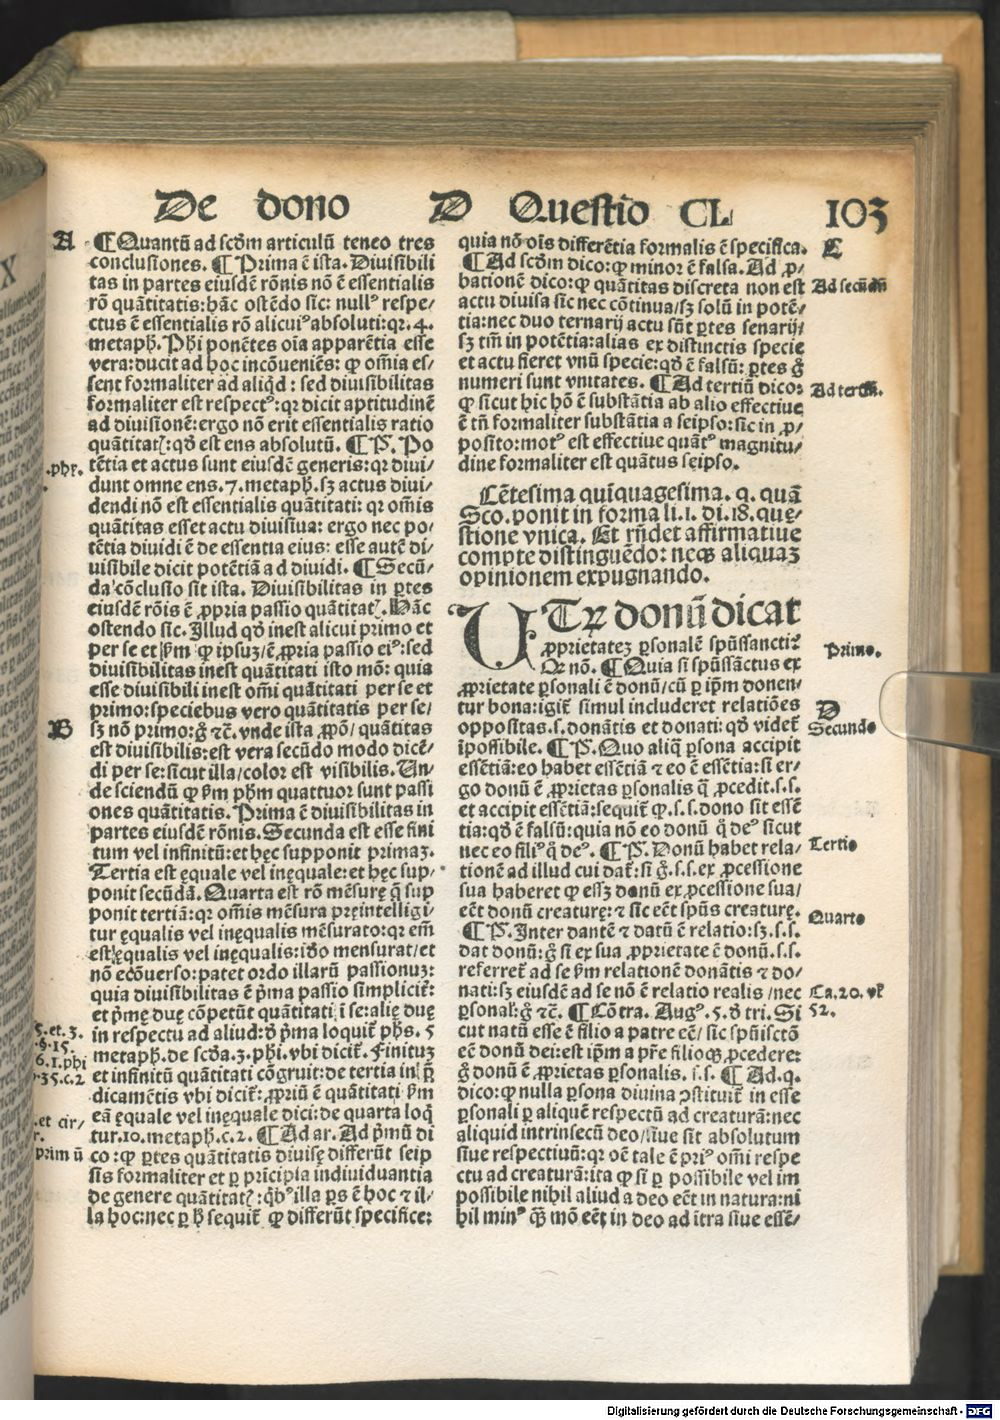 De dono D Questio CL 103
A
¶ Quantũ ad scdm articulũ teneo tres
conclusiones. ¶ Prima ẽ ista. Diuisibili
tas in partes eiusdẽ rõnis nõ ẽ essentialis
rõ quãtitatis: hãc ostẽdo sic: nullꝰ respe⸗
ctus ẽ essentialis rõ alicuiꝰ absoluti: qꝛ. 4.
metaph̃. Ph̃i ponẽtes oĩa apparẽtia esse
vera: ducit ad hoc incõueniẽs: ꝙ om̃ia es⸗
sent formaliter ad aliqd̃: sed diuisibilitas
formaliter est respectꝰ: qꝛ dicit aptitudinẽ
ad diuisionẽ: ergo nõ erit essentialis ratio
quãtitatꝭ: qd̃ est ens absolutũ. ¶ P̃. Po
tẽtia et actus sunt eiusdẽ generis: qꝛ diui⸗
dunt omne ens. 7. metaph̃. sꝫ actus diui⸗
dendi nõ est essentialis quãtitati: qꝛ om̃is
quãtitas esset actu diuisiua: ergo nec po⸗
tẽtia diuidi ẽ de essentia eius: esse autẽ di⸗
uisibile dicit potẽtiã ad diuidi. ¶ Secũ⸗
da cõclusio sit ista. Diuisibilitas in ꝑtes
eiusdẽ rõis ẽ ꝓpria passio quãtitatꝭ. Hãc
ostendo sic. Illud qd̃ inest alicui primo et
per se et p̃m ꝙ ipsuꝫ/ẽ ꝓpria passio eiꝰ: sed
diuisibilitas inest quãtitati isto mõ: quia
esse diuisibili inest om̃i quãtitati per se et
primo: speciebus vero quãtitatis per se/
sꝫ nõ primo: g̃ ⁊c̃. vnde ista ꝓpõ/ quãtitas
est diuisibilis: est vera secũdo modo dicẽ⸗
di per se: sicut illa/color est visibilis. Un⸗
de sciendũ ꝙ p̃m ph̃m quattuor sunt passi
ones quãtitatis. Prima ẽ diuisibilitas in
partes eiusdẽ rõnis. Secunda est esse fini
tum vel infinitũ: et hęc supponit primaꝫ.
Tertia est ęquale vel inęquale: et hęc sup⸗
ponit secũdã. Quarta est rõ mẽsurę q̃ sup
ponit tertiã: qꝛ om̃is mẽsura pręintelligi⸗
tur ęqualis vel inęqualis mẽsurato: qꝛ em̃
est ęqualis vel inęqualis: iõo mensurat/et
nõ ecõuerso: patet ordo illarũ passionuꝫ:
quia diuisibilitas ẽ p̃ma passio simplicit̃:
et p̃mę duę cõpetũt quãtitati ĩ se: alię duę
in respectu ad aliud: d̃ p̃ma loquit̃ ph̃s. 5
metaph̃. de scd̃a. 3. phi. vbi dicit̃. Finituꝫ
et infinitũ quãtitati cõgruit: de tertia in p̃
dicamẽtis vbi dicit̃: ꝓpriũ ẽ quãtitati p̃m
eã ęquale vel inęquale dici: de quarta loq̃
tur. 10. metaph̃. c. 2. ¶ Ad ar. Ad p̃mũ di
co: ꝙ ꝑtes quãtitatis diuisę differũt seip
sis formaliter et ꝑ prĩcipia indiuiduantia
de genere quãtitatꝭ: q̃bꝰ illa ꝑs ẽ hoc ⁊ il⸗
la hoc: nec ꝑ h̃ sequit̃ ꝙ differũt specifice:
.phẽ.
B
5. et. 3.
6. 1. phi
35. c. 2
.et cir/
Primũ
quia nõ oĩs differẽtia formalis ẽ specifica.
¶ Ad scdm dico: ꝙ minor ẽ falsa. Ad ꝓ⸗
bationẽ dico: ꝙ quãtitas discreta non est
actu diuisa sic nec cõtinua/sꝫ solũ in potẽ⸗
tia: nec duo ternarij actu sũt ꝑtes senarij/
sꝫ tm̃ in potẽtia: alias ex distinctis specie
et actu fieret vnũ specie: qd̃ ẽ falsũ: ꝑtes g̃
numeri sunt vnitates. ¶ Ad tertiũ dico:
ꝙ sicut hic hõ ẽ substãtia ab alio effectiue
ẽ tñ formaliter substãtia a seipso: sic in ꝓ⸗
posito: motꝰ est effectiue quãtꝰ magnitu⸗
dine formaliter est quãtus seipso.
C
Ad secũdũ
Ad tertiũ.
Cẽtesima quĩquagesima. q. quã
Sco. ponit in forma li. 1. di. 18. quę⸗
stione vnica. Et rñdet affirmatiue
compte distinguẽdo: neqꝫ aliquaꝫ
opinionem expugnando.
UTꝝ donũ dicat
ꝓprietateꝫ ꝑsonalẽ spũssanctiꝰ
Qꝛ nõ. ¶ Quia si spũssãctus ex
ꝓprietate ꝑsonali ẽ donũ/cũ ꝑ ip̃m donen⸗
tur bona: igit̃ simul includeret relatiões
oppositas. s. donãtis et donati: qd̃ videt̃
ĩpossibile. ¶ P̃. Quo aliq̃ ꝑsona accipit
essẽtiã: eo habet essẽtiã ⁊ eo ẽ essẽtia: si er⸗
go donũ ẽ ꝓprietas ꝑsonalis q̃ ꝓcedit. s. s.
et accipit essẽtiã: sequit̃ ꝙ. s. s. dono sit essẽ
tia: qd̃ ẽ falsũ: quia nõ eo donũ q̃ deꝰ sicut
nec eo filiꝰ q̃ deꝰ. ¶ P̃. Donũ habet rela⸗
tionẽ ad illud cui dat̃: si g̃. s. s. ex ꝓcessione
sua haberet ꝙ esseꝫ donũ ex ꝓcessione sua/
eẽt donũ creaturę: ⁊ sic eẽt spũs creaturę.
¶ P̃. Inter dantẽ ⁊ datũ ẽ relatio: sꝫ. s. s.
dat donũ: g̃ si ex sua ꝓprietate ẽ donũ. s. s.
referret̃ ad se p̃m relationẽ donãtis ⁊ do⸗
nati: sꝫ eiusdẽ ad se nõ ẽ relatio realis/nec
ꝑsonal̃: g̃ ⁊c̃. ¶ Cõtra. Augꝰ. 5. d̃ tri. Si
cut natũ esse ẽ filio a patre eẽ/ sic spũiscto
eẽ donũ dei: est ip̃m a pr̃e filioqꝫ ꝓcedere:
g̃ donũ ẽ ꝓprietas ꝑsonalis. s. s. ¶ Ad. q.
dico: ꝙ nulla ꝑsona diuina ꝯstituit̃ in esse
ꝑsonali ꝑ aliquẽ respectũ ad creaturã: nec
aliquid intrinsecũ deo/siue sit absolutum
siue respectiuũ: qꝛ oẽ tale ẽ priꝰ om̃i respe
ctu ad creaturã: ita ꝙ si ꝑ possibile vel im
possibile nihil aliud a deo eẽt in natura: ni
hil minꝰ q̃ꝫ mõ eẽt in deo ad ĩtra siue essẽ⸗
Primo.
D
Secundo
Tertio
Quarto
Ca. 20. vel
52.
Digitalisierung gefördert durch die Deutsche Forschungsgemeinschaft - DFG